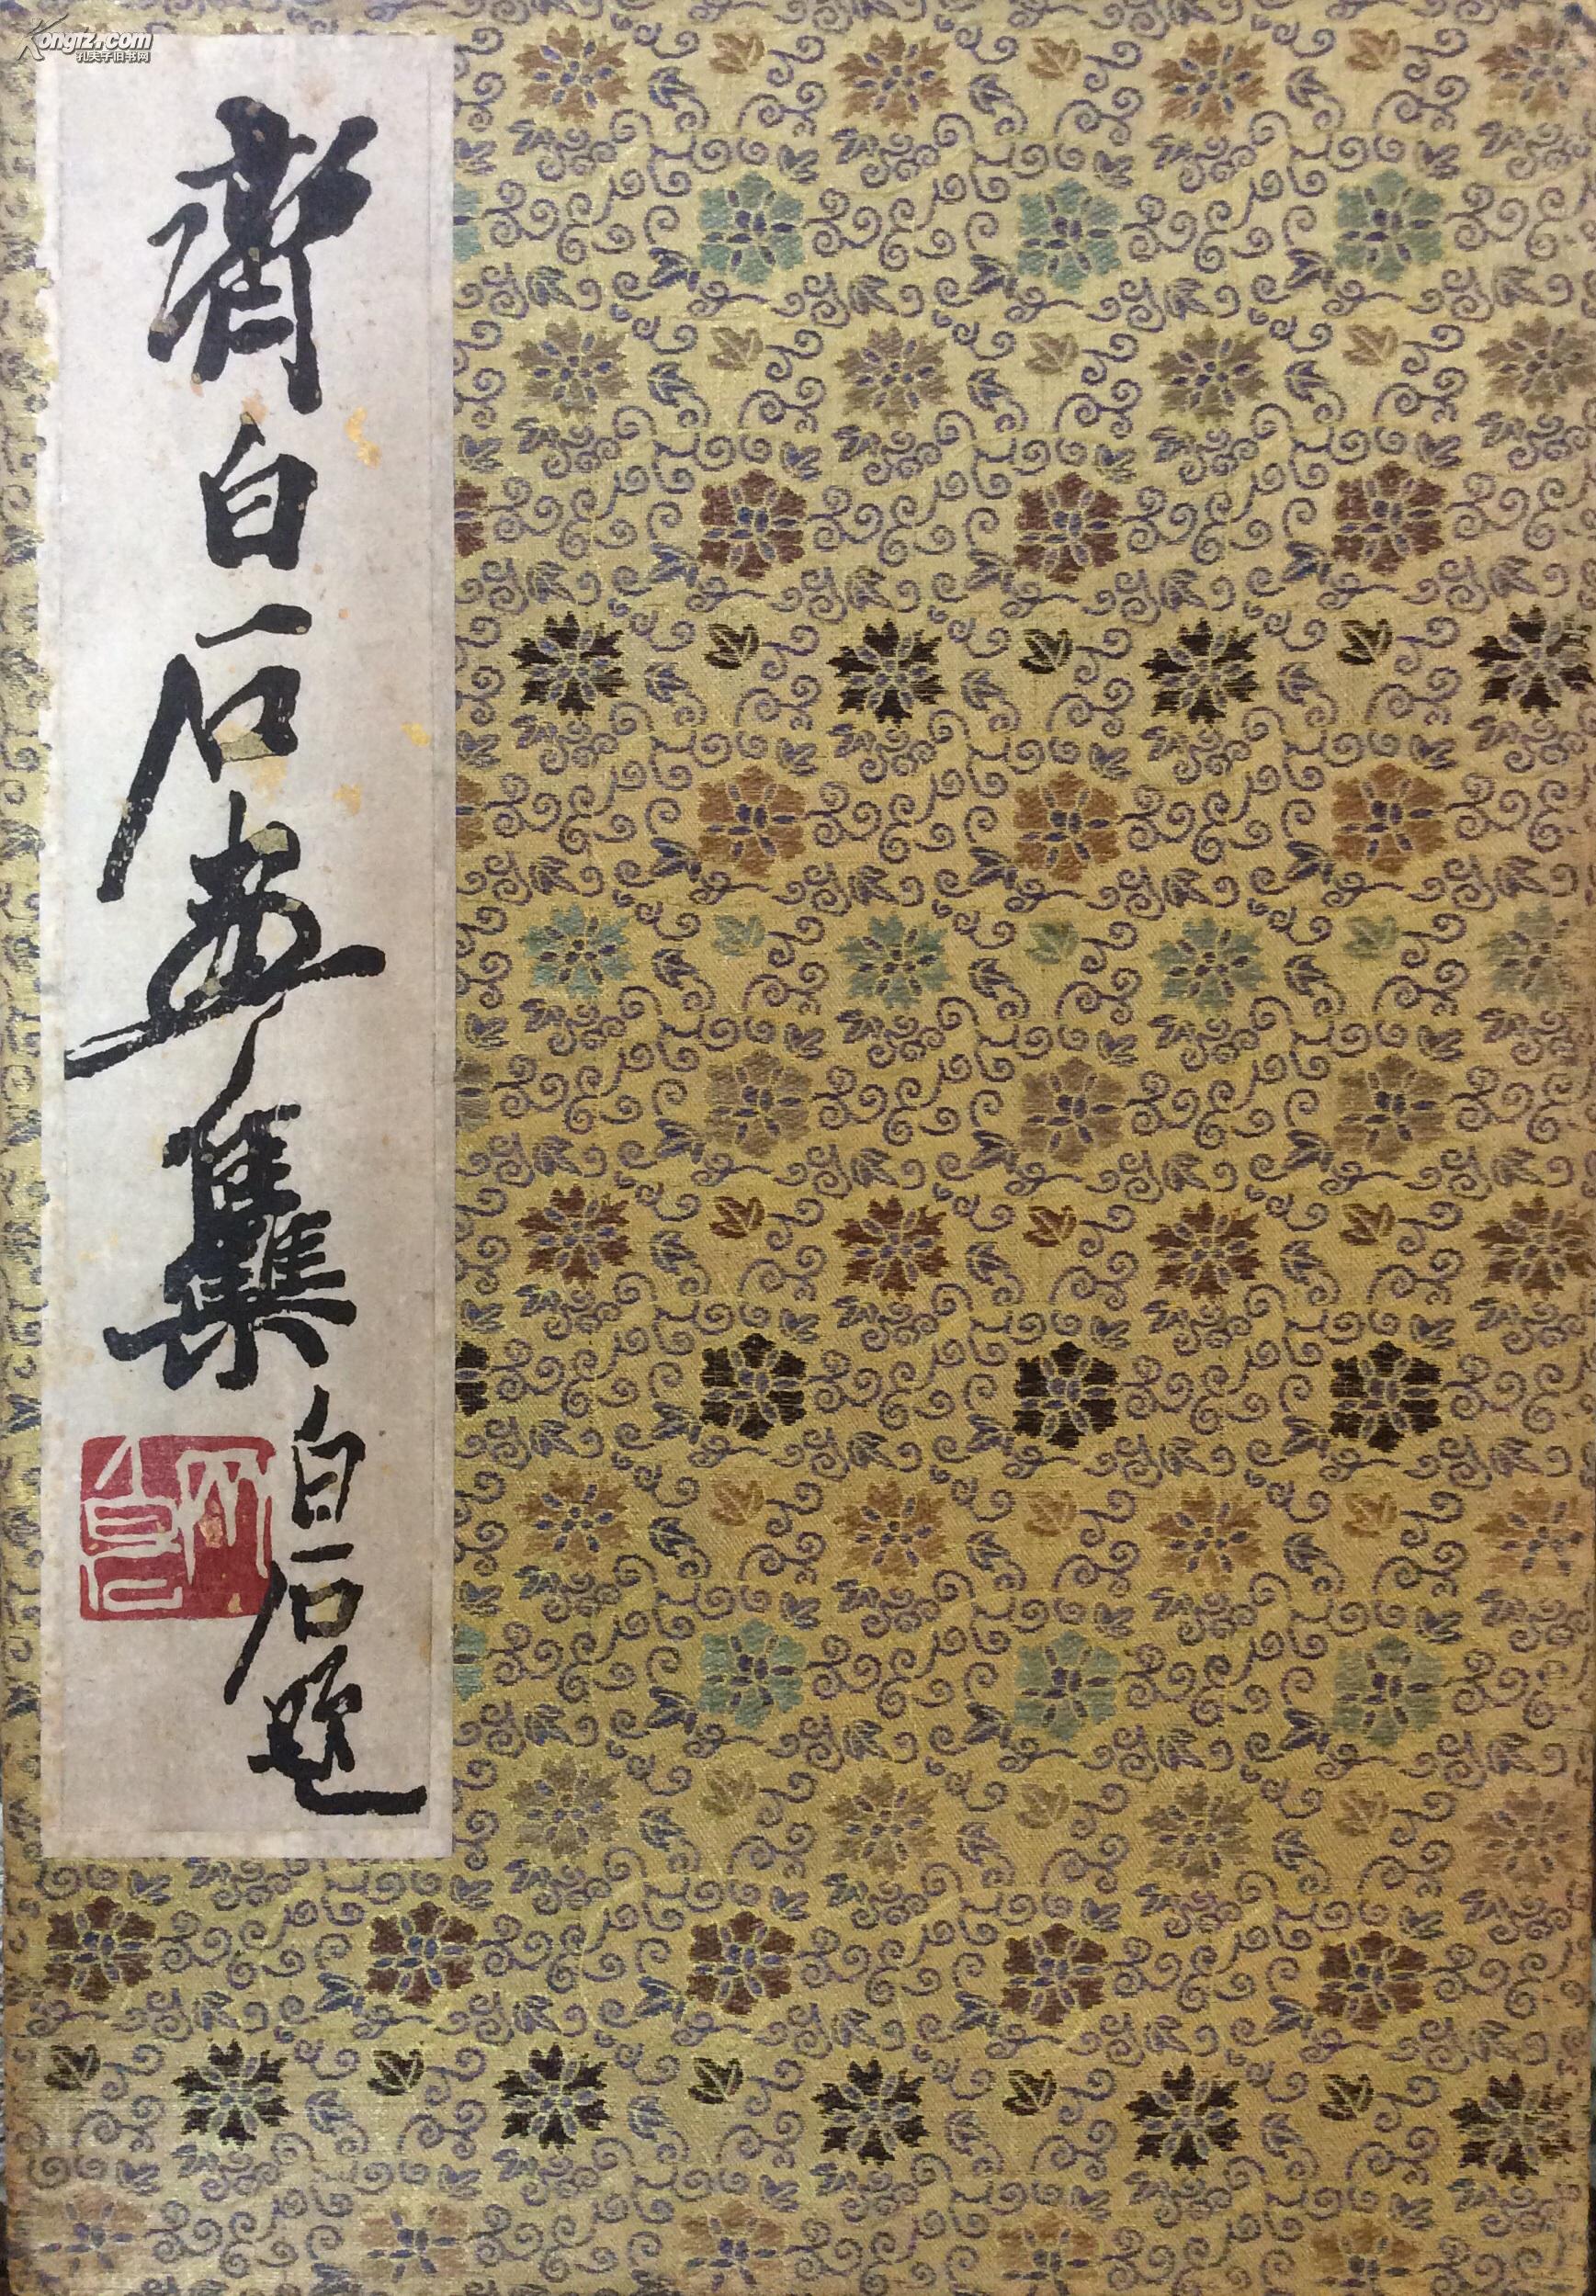 Kongfz.com
孔夫子旧书网
齊白石画集
白石題